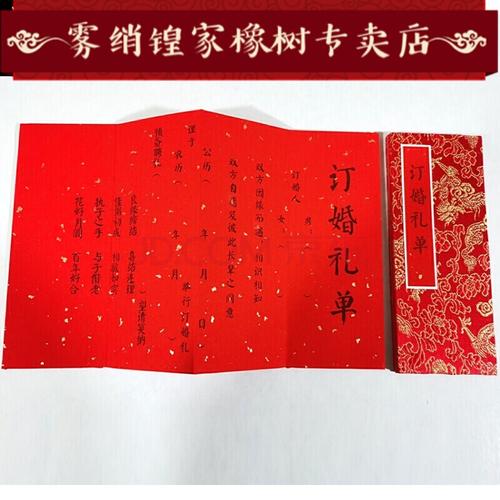 雾绡锽家橡树专卖店
订婚礼单
订婚人
男：
女：
双方因缘而遇 相识相知
双方自愿 彼此长辈之同意
谨于
公历 年 月 日
农历 年 月 举行订婚礼
预备聘礼（
）望请笑纳
良缘缔结 喜结连理
佳偶初成 相敬如宾
执子之手 与子偕老
花好月圆 百年好合
订婚礼单
JD.COM